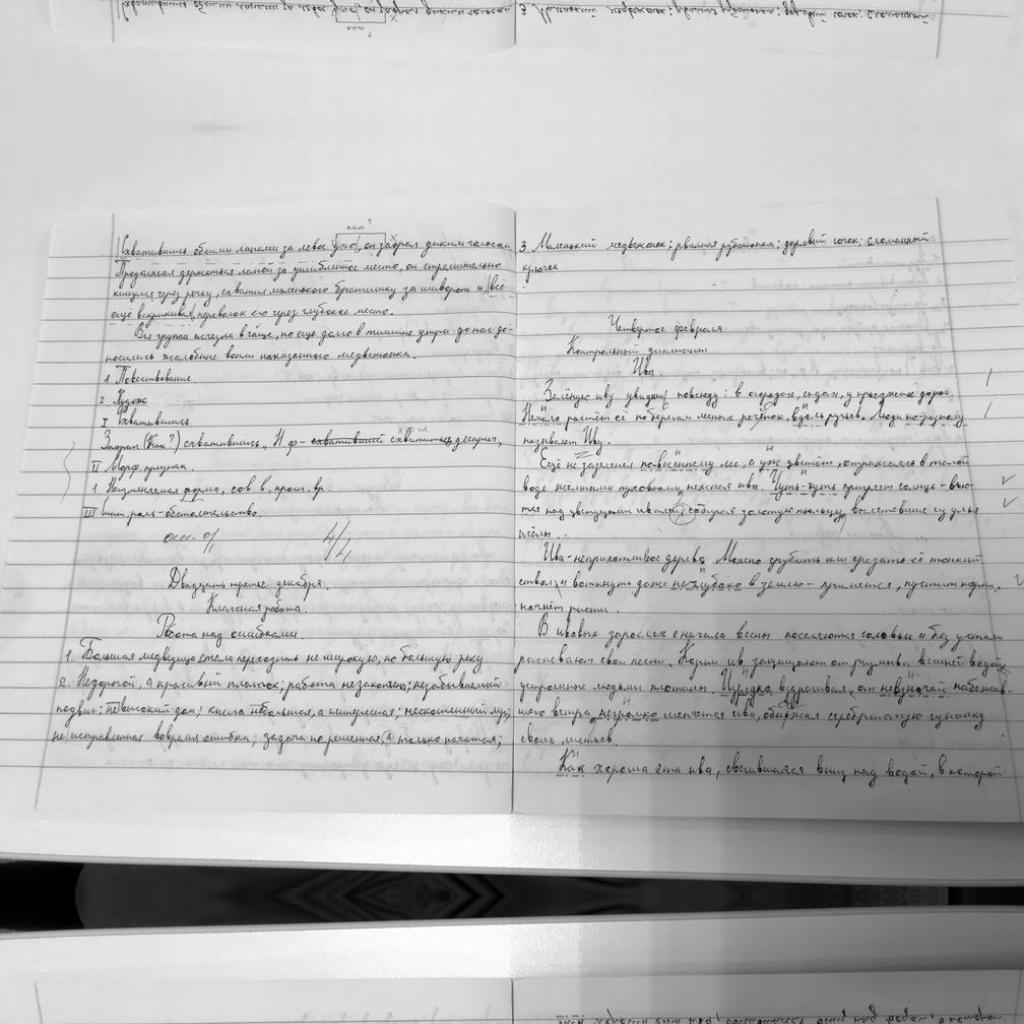 Схватившись обеими лапами за левое ухо, он заорал диким голосом
Продолжая держаться лапой за ушибленное место, он стремительно
кинулся через речку, схватил маленького братишку за шиворот и, всё
ещё вскрикивая, переволок его через глубокое место.
Вся группа исчезла в чаще, но ещё долго в тишине утра до нас до-
носились жалобные вопли наказанного медвежонка.
1. Повествование.
2. Худож
I Схватившись
Заорал (Как?) схватившись, Н ф - схватиться, дееприч,
II Морф. признак.
1. Неизменяемая форма, сов. в., прош. вр.
III синт. роль - обстоятельство
4/4
Двадцать третье декабря.
Классная работа.
Работа над ошибками.
1. Большая медведица стала переходить не широкую, но большую реку
2. Недорогой, а красивый платок; работа незакончена; незабываемый
подвиг; невысокий дом; книга не большая, а интересная; нескошенный луг;
не исправленная вовремя ошибка; задача не решенная, а только начатая;
3. Маленький медвежонок; рваная рубашонка; дешёвый сачок; сломанный
крючок
Четвертое февраля
Контрольный диктант
Ива.
Зелёную иву увидишь повсюду: в огородах, садах, у проезжих дорог.
Немало растёт её по берегам мелких речонок, вдоль ручьев. Люди по-разному
называют Иву.
Ещё не зазеленел по-весеннему лес, а уж цветёт, отражаясь в талой
воде желтыми пуховками, неясная ива. Чуть-чуть пригреет солнце - вью-
тся над цветущими ивами, собирая золотую пыльцу, вылетевшие из улья
пчёлы.
Ива - неприхотливое дерево. Можно срубить или срезать её тонкий
ствол и воткнуть даже неглубоко в землю - приживется, пустит корни,
начнёт расти.
В ивовых зарослях с начала весны поселяются соловьи и без устали
распевают свои песни. Корни ив защищают от размыва вешней водой
устроенные людьми плотины. Изредка, вздрагивая от невзначай набежав-
шего ветра, негромко шепчется ива, обнажая серебристую изнанку
своих листьев.
Как хороша эта ива, свесившаяся вниз над водой, в которой